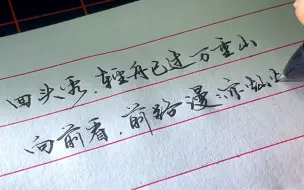 回头看,轻舟已过万重山
向前看,前路漫亦灿